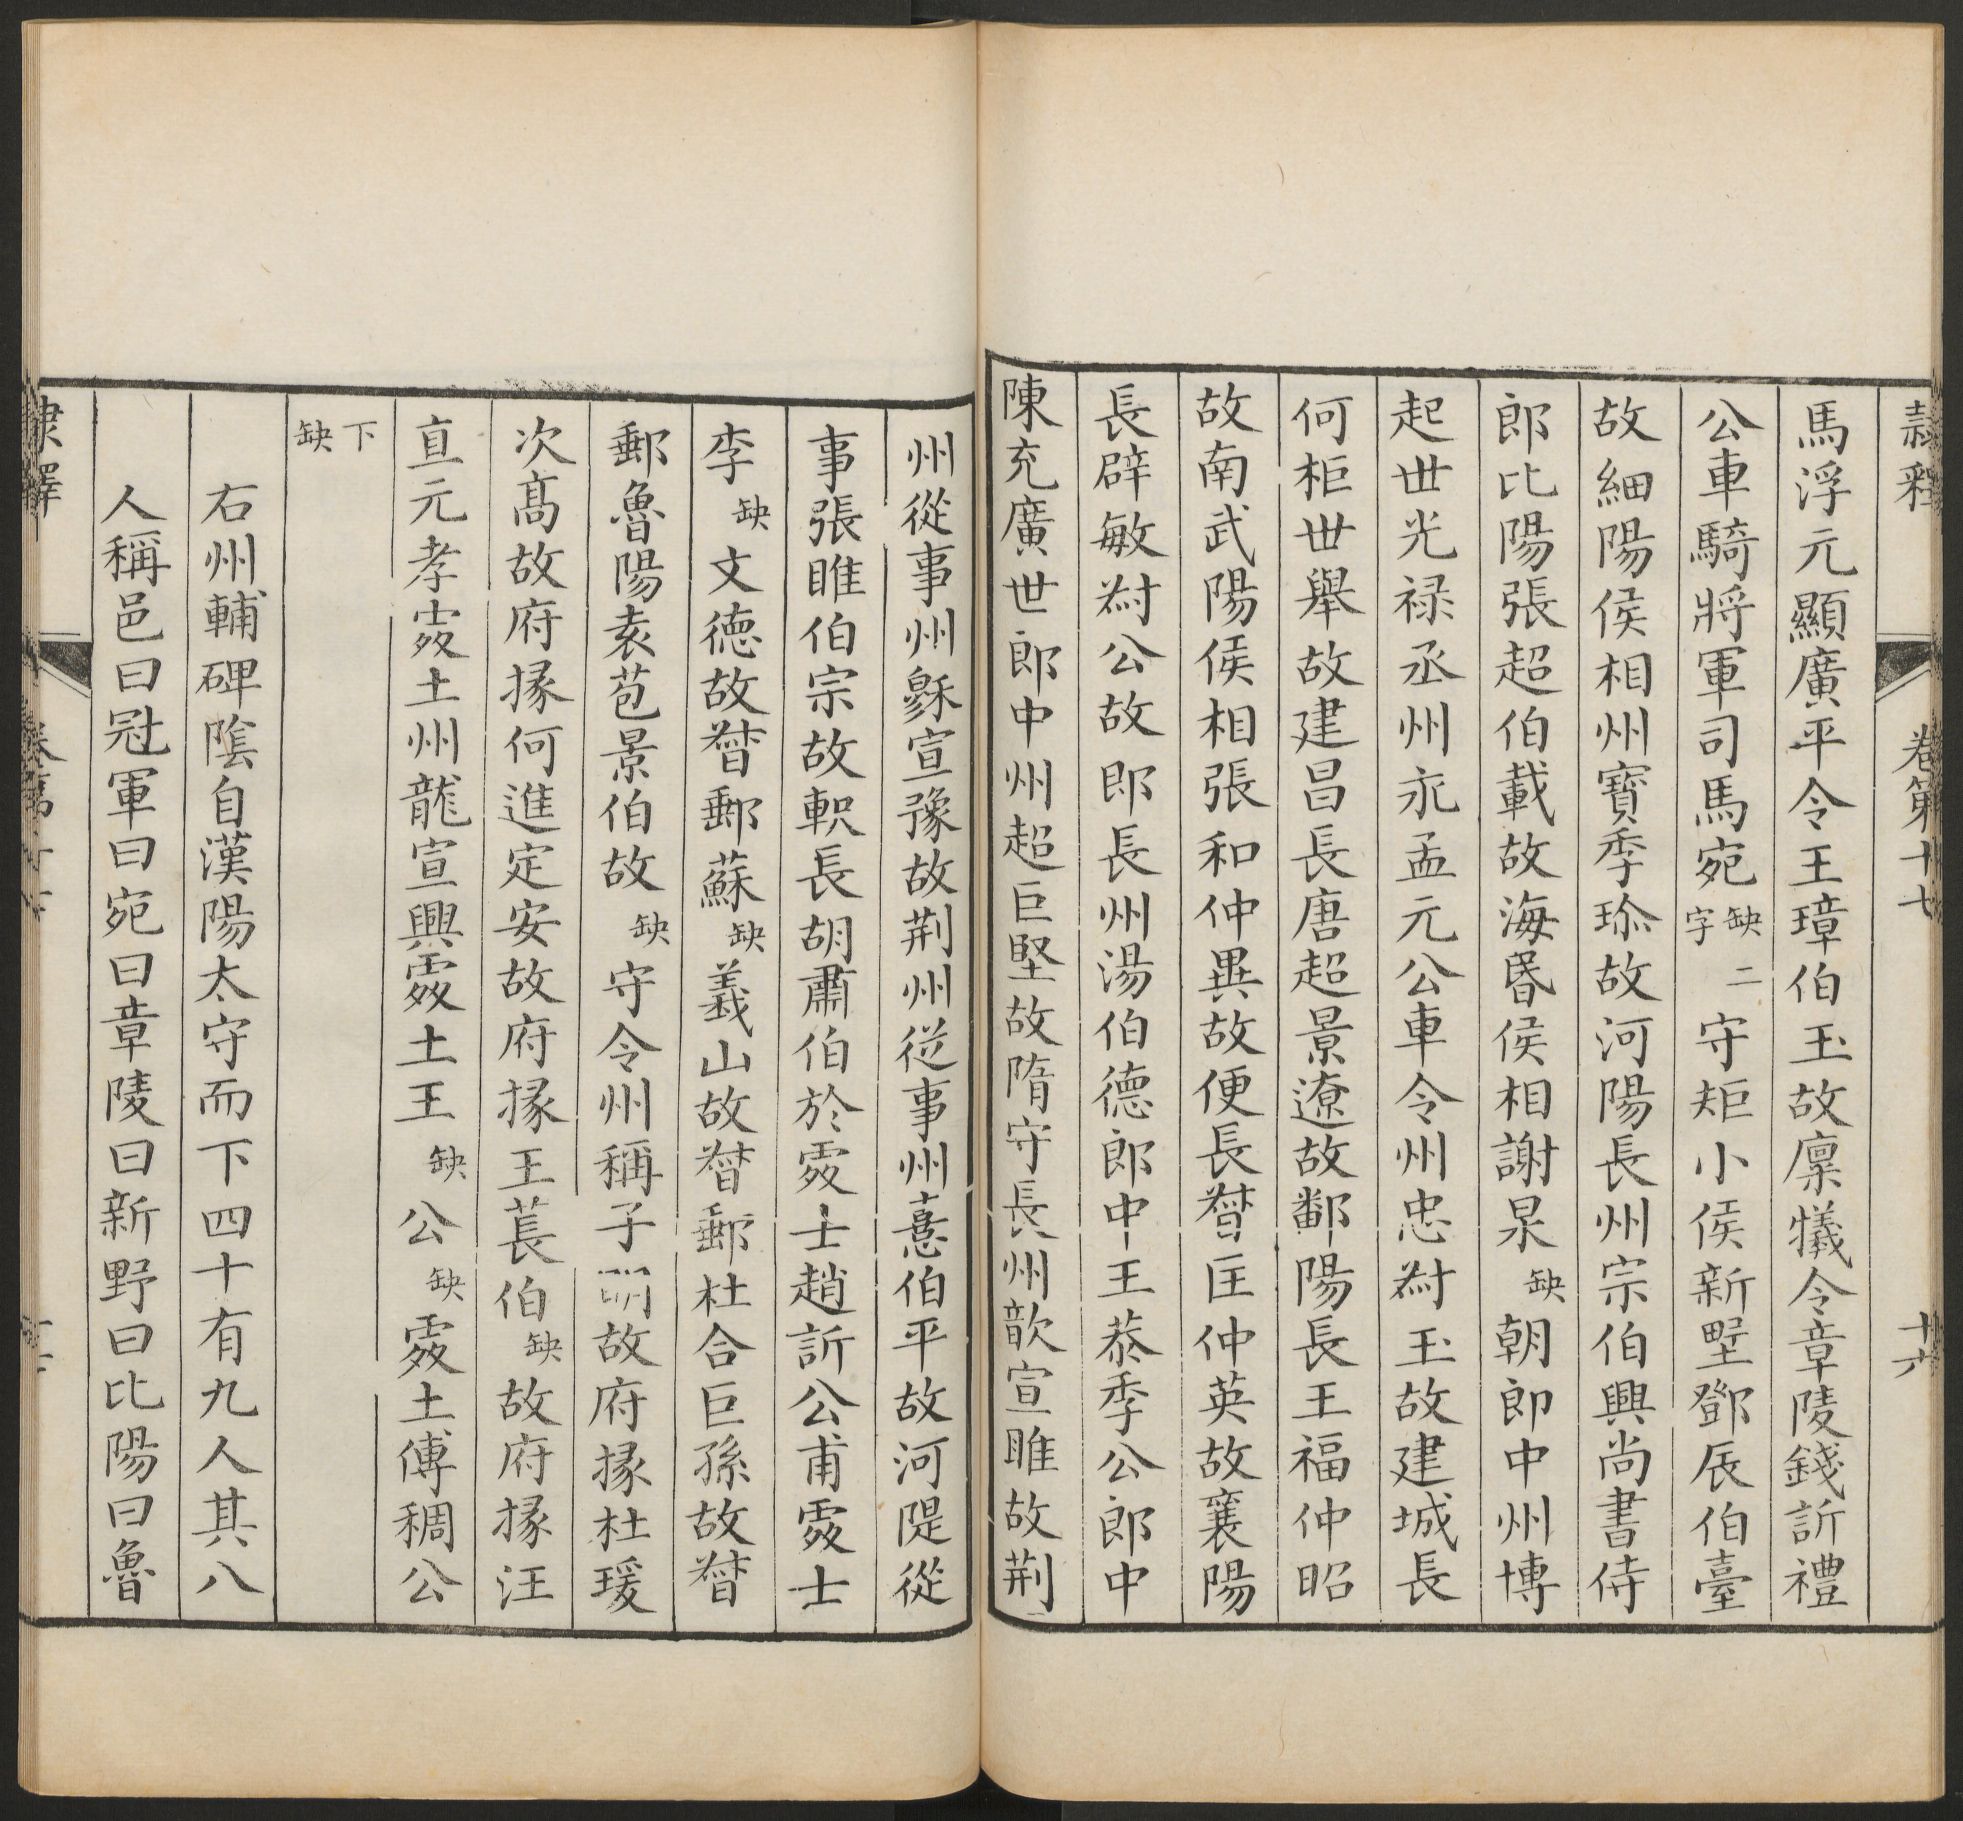 隷釋 卷第十七 十六
馬浮元顯廣平令王璋伯玉故廩犧令章陵錢訢禮
公車騎將軍司馬宛缺二字守矩小侯新墅鄧辰伯臺
故細陽侯相州寶季珎故河陽長州宗伯興尚書侍
郎比陽張超伯載故海昬侯相謝杲缺朝郎中州博
起世光禄丞州永孟元公車令州忠尌玉故建城長
何柜世舉故建昌長唐超景遼故鄱陽長王福仲昭
故南武陽侯相張和仲異故便長瞀匡仲英故襄陽
長辟敏尌公故郎長州湯伯德郎中王恭季公郎中
陳充廣世郎中州超巨堅故隋守長州歆宣睢故荆
州從事州繇宣豫故荆州從事州憙伯平故河隄從
事張睢伯宗故軹長胡肅伯於䖏士趙訢公甫䖏士
李缺文德故瞀郵蘇缺義山故瞀郵杜合巨孫故瞀
郵魯陽袁苞景伯故缺守令州稱子明故府掾杜瑗
次髙故府掾何進定安故府掾王萇伯缺故府掾汪
直元孝䖏土州龍宣興䖏土王缺公缺䖏土傅稠公
下缺
右州輔碑隂自漢陽太守而下四十有九人其八
人稱邑曰冠軍曰宛曰章陵曰新野曰比陽曰魯
隷釋 卷第十七